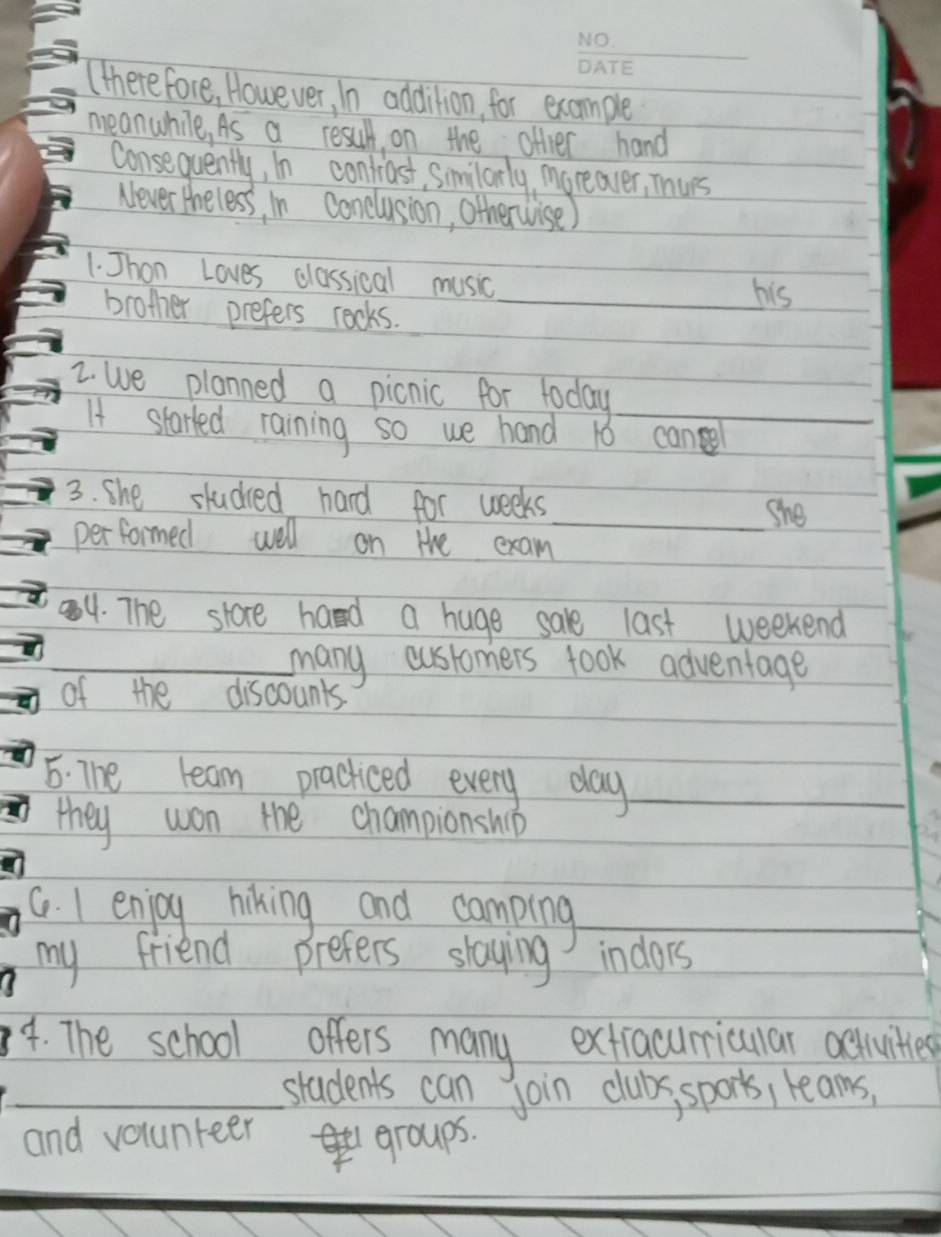 NO.
DATE
(therefore, However, In addition, for example
meanwhile, As a result, on the other hand
Consequently, In contrast, Similarly, moreover, Thurs
Nevertheless, In Conclusion, Otherwise)
1. Jhon Loves classical music ____________ his
brother prefers rocks.
2. We planned a picnic for today ____________
It started raining so we hand to cancel
3. She studied hard for weeks ____________ she
performed well on the exam
4. The store had a huge sale last weekend
____________ many customers took adventage
of the discounts.
5. The team practiced every day ____________
they won the championship
6. I enjoy hiking and camping ____________
my friend prefers staying indors
7. The school offers many extracurricular activities
____________ students can join clubs, sports, teams,
and volunteer groups.